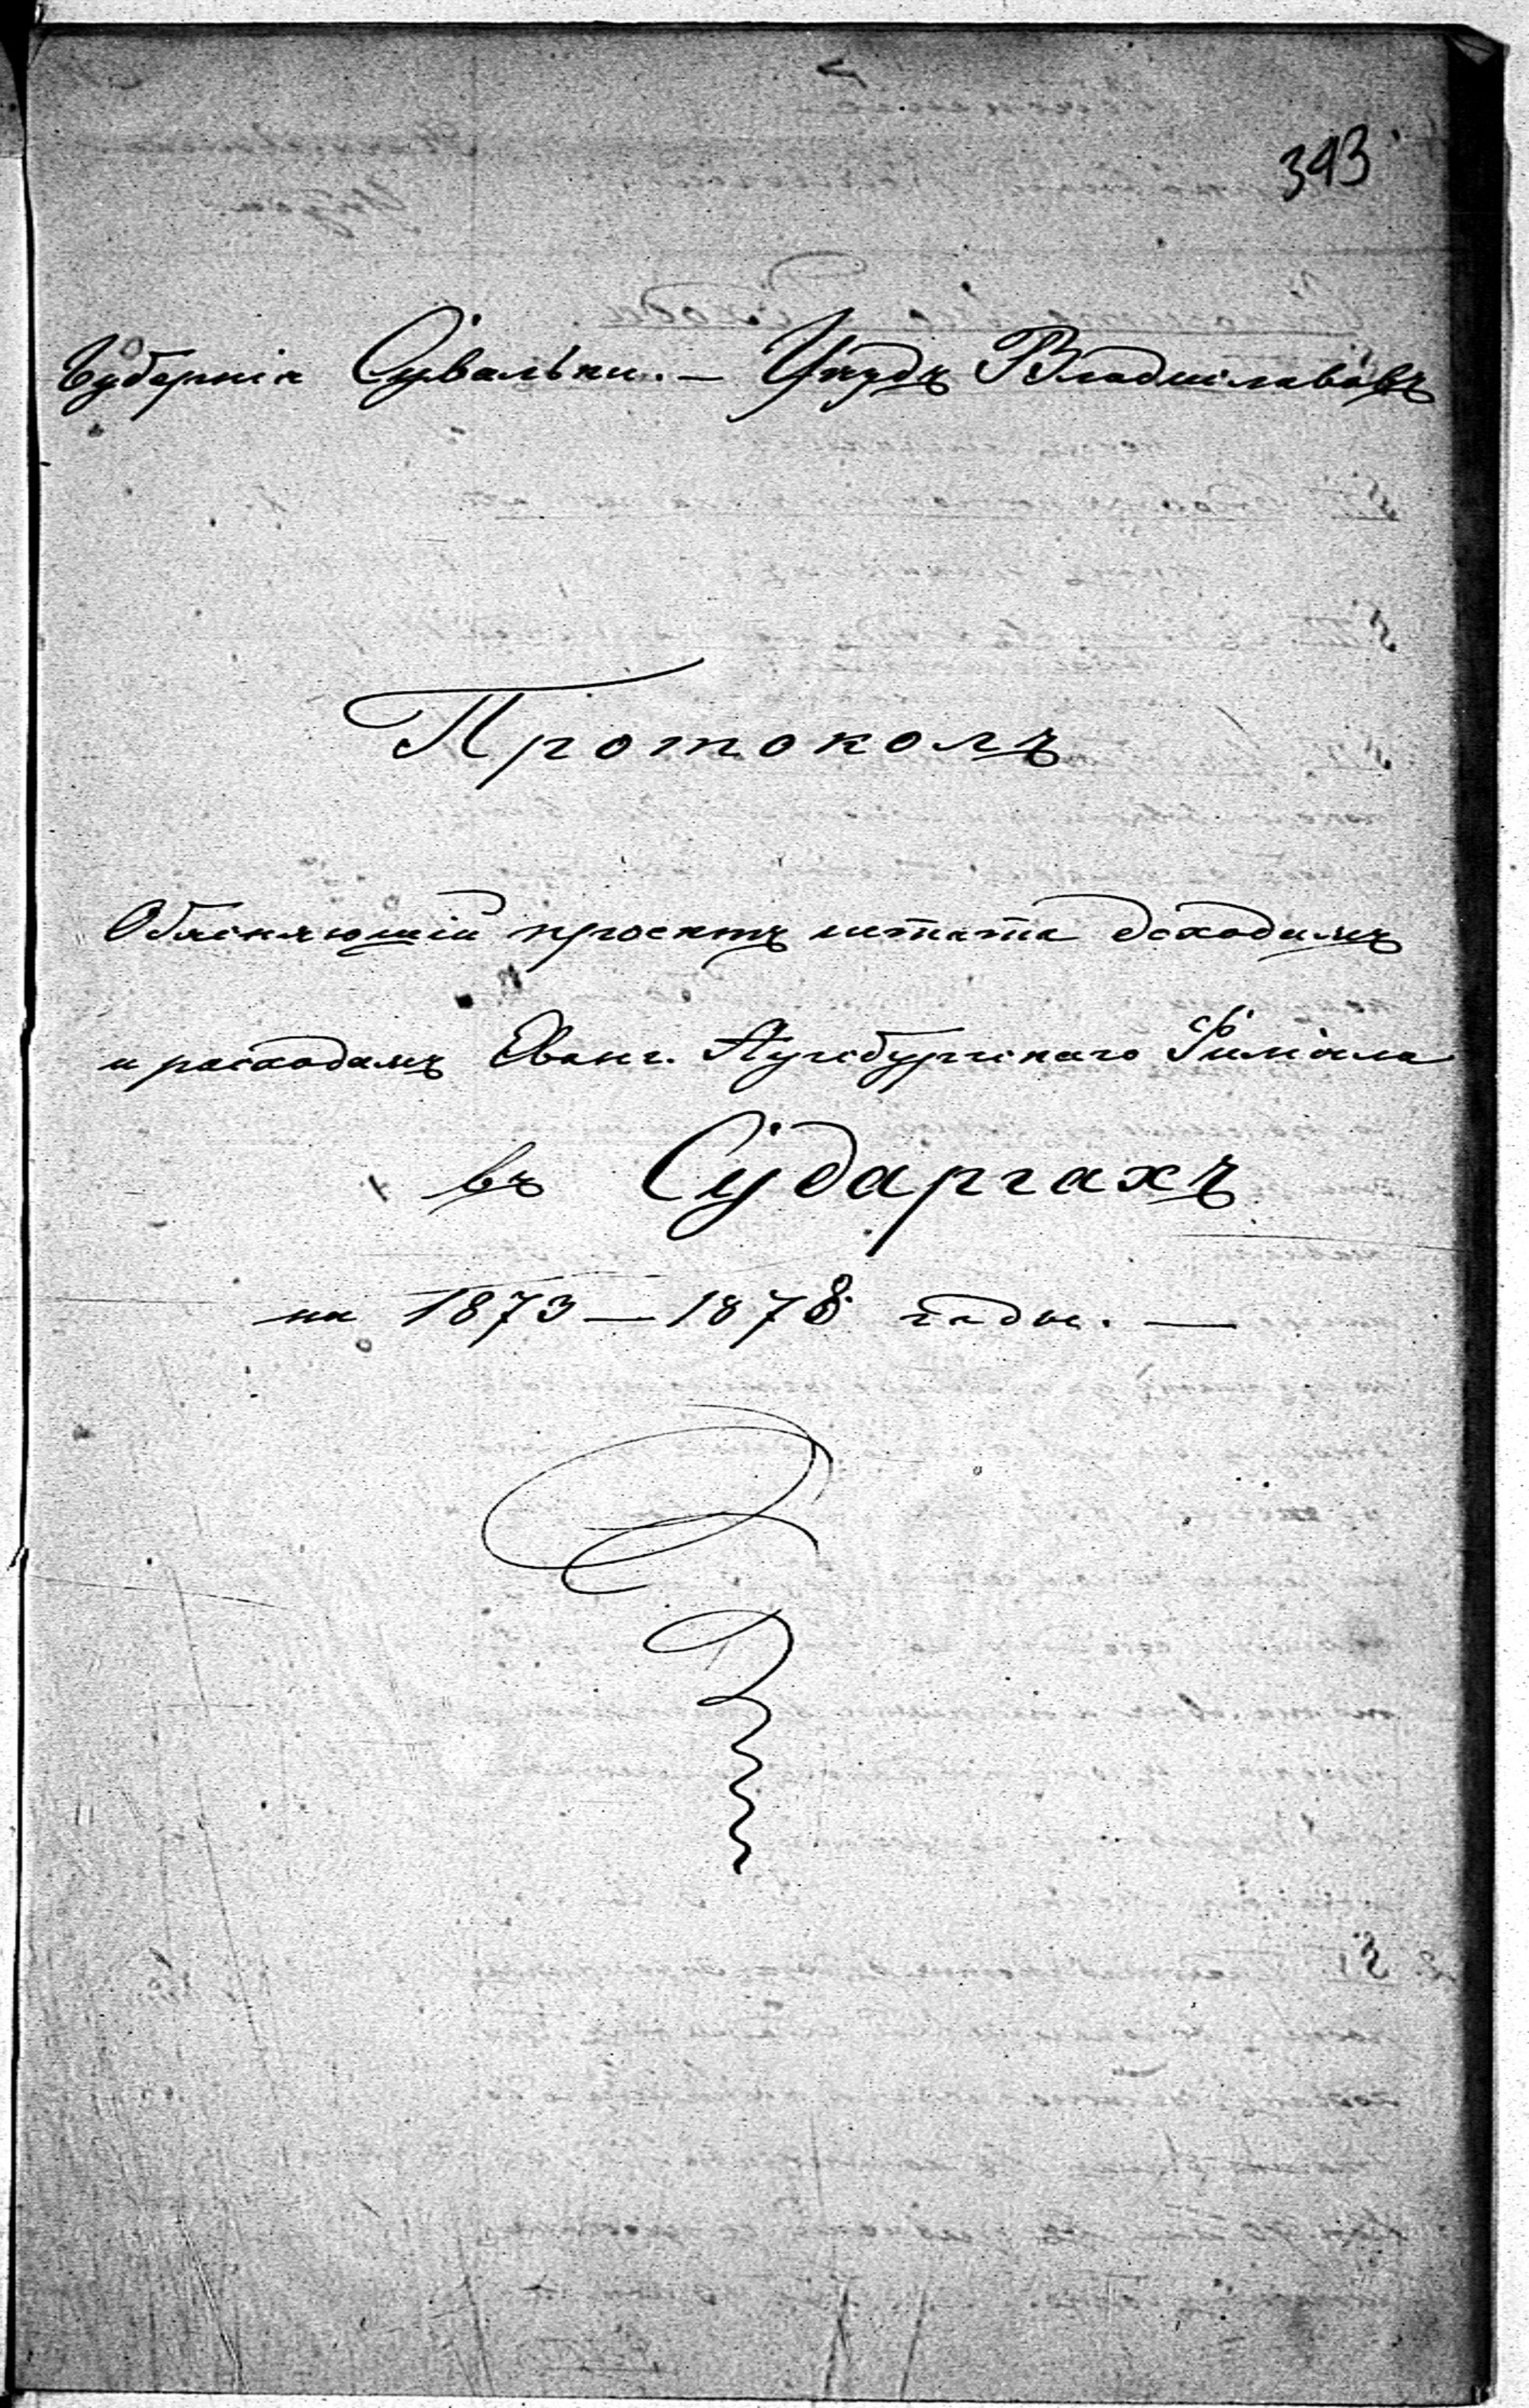 343
Губернія Сувалки. — Уездъ Владиславовъ
Протоколъ
Обясняющій проектъ штата доходамъ
и расходамъ Еванг. Аугсбургскаго Филіала
въ Сударгахъ
на 1873 — 1878 годы. —